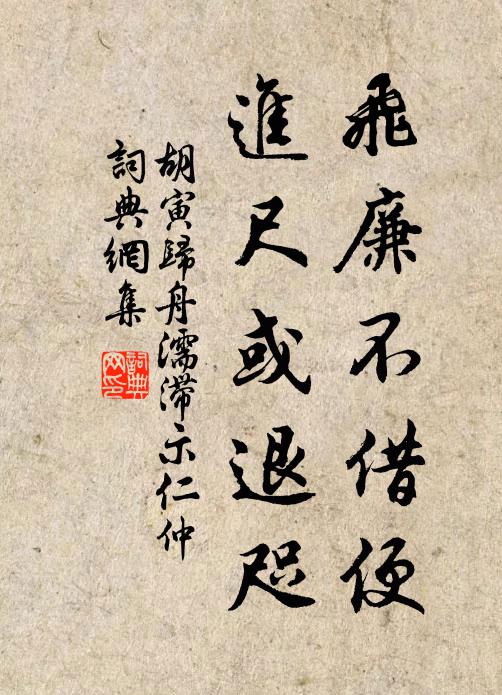 飛廉不借便
進尺或退咫
胡寅歸舟濡滯示仁仲
詞典網集
詞典
网印